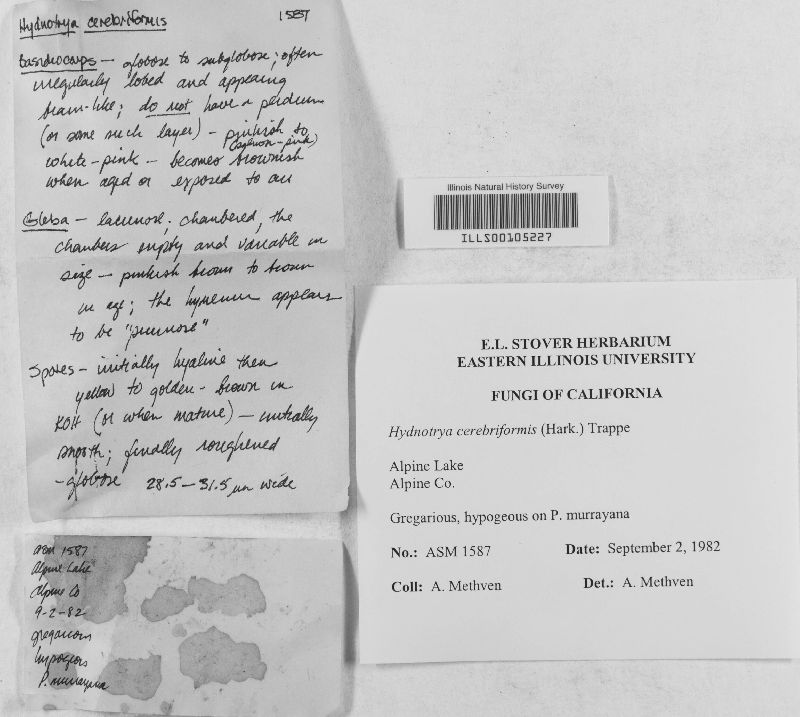 Hydnotrya cerebriformis 1587
basidiocarps – globose to subglobose; often
irregularly lobed and appearing
brain-like; do not have a peridium
(or some such layer) – pinkish to
(salmon-pink)
white-pink – becomes brownish
when aged or exposed to air
Gleba – lacunose; chambered, the
chambers empty and variable in
size – pinkish brown to brown
in age; the hymenium appears
to be "pruinose"
Spores – initially hyaline then
yellow to golden-brown in
KOH (or when mature) – initially
smooth; finally roughened
– globose 28.5–31.5 µm wide
ASM 1587
Alpine Lake
Alpine Co
9-2-82
gregarious
hypogeous
P. murrayana
Illinois Natural History Survey
ILLS00105227
E.L. STOVER HERBARIUM
EASTERN ILLINOIS UNIVERSITY
FUNGI OF CALIFORNIA
Hydnotrya cerebriformis (Hark.) Trappe
Alpine Lake
Alpine Co.
Gregarious, hypogeous on P. murrayana
No.: ASM 1587 Date: September 2, 1982
Coll: A. Methven Det.: A. Methven